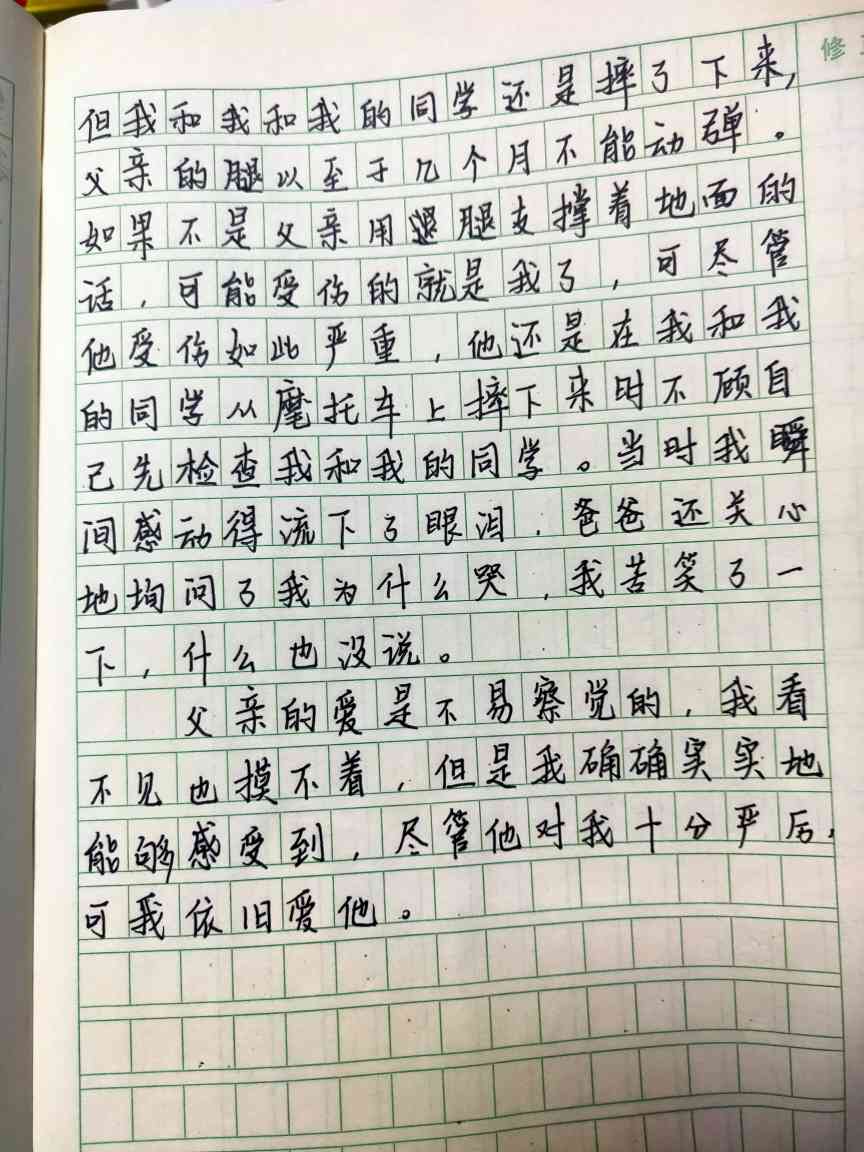 修
但我和我和我的同学还是摔了下来,
父亲的腿以至于几个月不能动弹。
如果不是父亲用腿腿支撑着地面的
话,可能受伤的就是我了,可尽管
他受伤如此严重,他还是在我和我
的同学从摩托车上摔下来时不顾自
己先检查我和我的同学。当时我瞬
间感动得流下了眼泪,爸爸还关心
地询问了我为什么哭,我苦笑了一
下,什么也没说。
父亲的爱是不易察觉的,我看
不见也摸不着,但是我确确实实地
能够感受到,尽管他对我十分严厉,
可我依旧爱他。